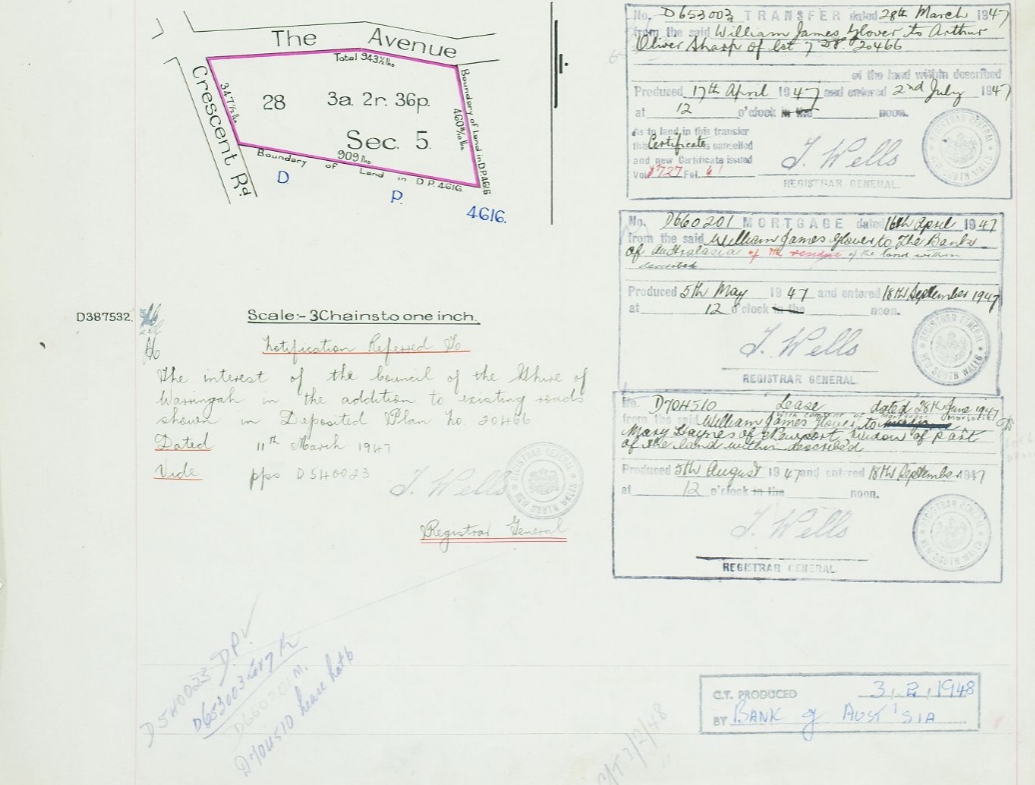 The Avenue
Total 943½ lks.
Crescent Rd.
347⅕ lks.
28
3a. 2r. 36p.
Sec. 5.
Boundary of Land in D.P.4616
460⁸⁄₁₀ lks.
909 lks.
Boundary of Land in D.P.4616
D P. 4616.
D387532.
Scale:- 3 Chains to one inch.
Notification Referred To
The interest of the Council of the Shire of
Warringah in the addition to existing roads
shown in Deposited Plan No. 20466
Dated 11th March 1947
Vide pps D540023
J. Wells
Registrar General
No. D653003 TRANSFER dated 28th March 1947
from the said William James Glover to Arthur
Oliver Sharp of lot 7 D.P. 20466
of the land within described
Produced 17th April 1947 and entered 2nd July 1947
at 12 o'clock in the noon.
As to land in this transfer
this Certificate is cancelled
and new Certificate issued
Vol. 5727 Fol. 61
J. Wells
REGISTRAR GENERAL.
REGISTRAR GENERAL NEW SOUTH WALES
No. D660201 MORTGAGE dated 16th April 1947
from the said William James Glover to The Bank
of Australasia of the residue of the land within
described
Produced 5th May 1947 and entered 18th September 1947
at 12 o'clock in the noon.
J. Wells
REGISTRAR GENERAL.
REGISTRAR GENERAL NEW SOUTH WALES
No. D704510 Lease dated 28th June 1947
from the said William James Glover to
Mary Haynes of Newport, Widow of part
of the land within described
Produced 5th August 1947 and entered 18th September 1947
at 12 o'clock in the noon.
J. Wells
REGISTRAR GENERAL.
REGISTRAR GENERAL NEW SOUTH WALES
D540023 DP✓
D653003
D660201 M.
D704510 Lease
C.T. PRODUCED 3.2.1948
BY BANK of AUST'SIA
C/T 3/2/48